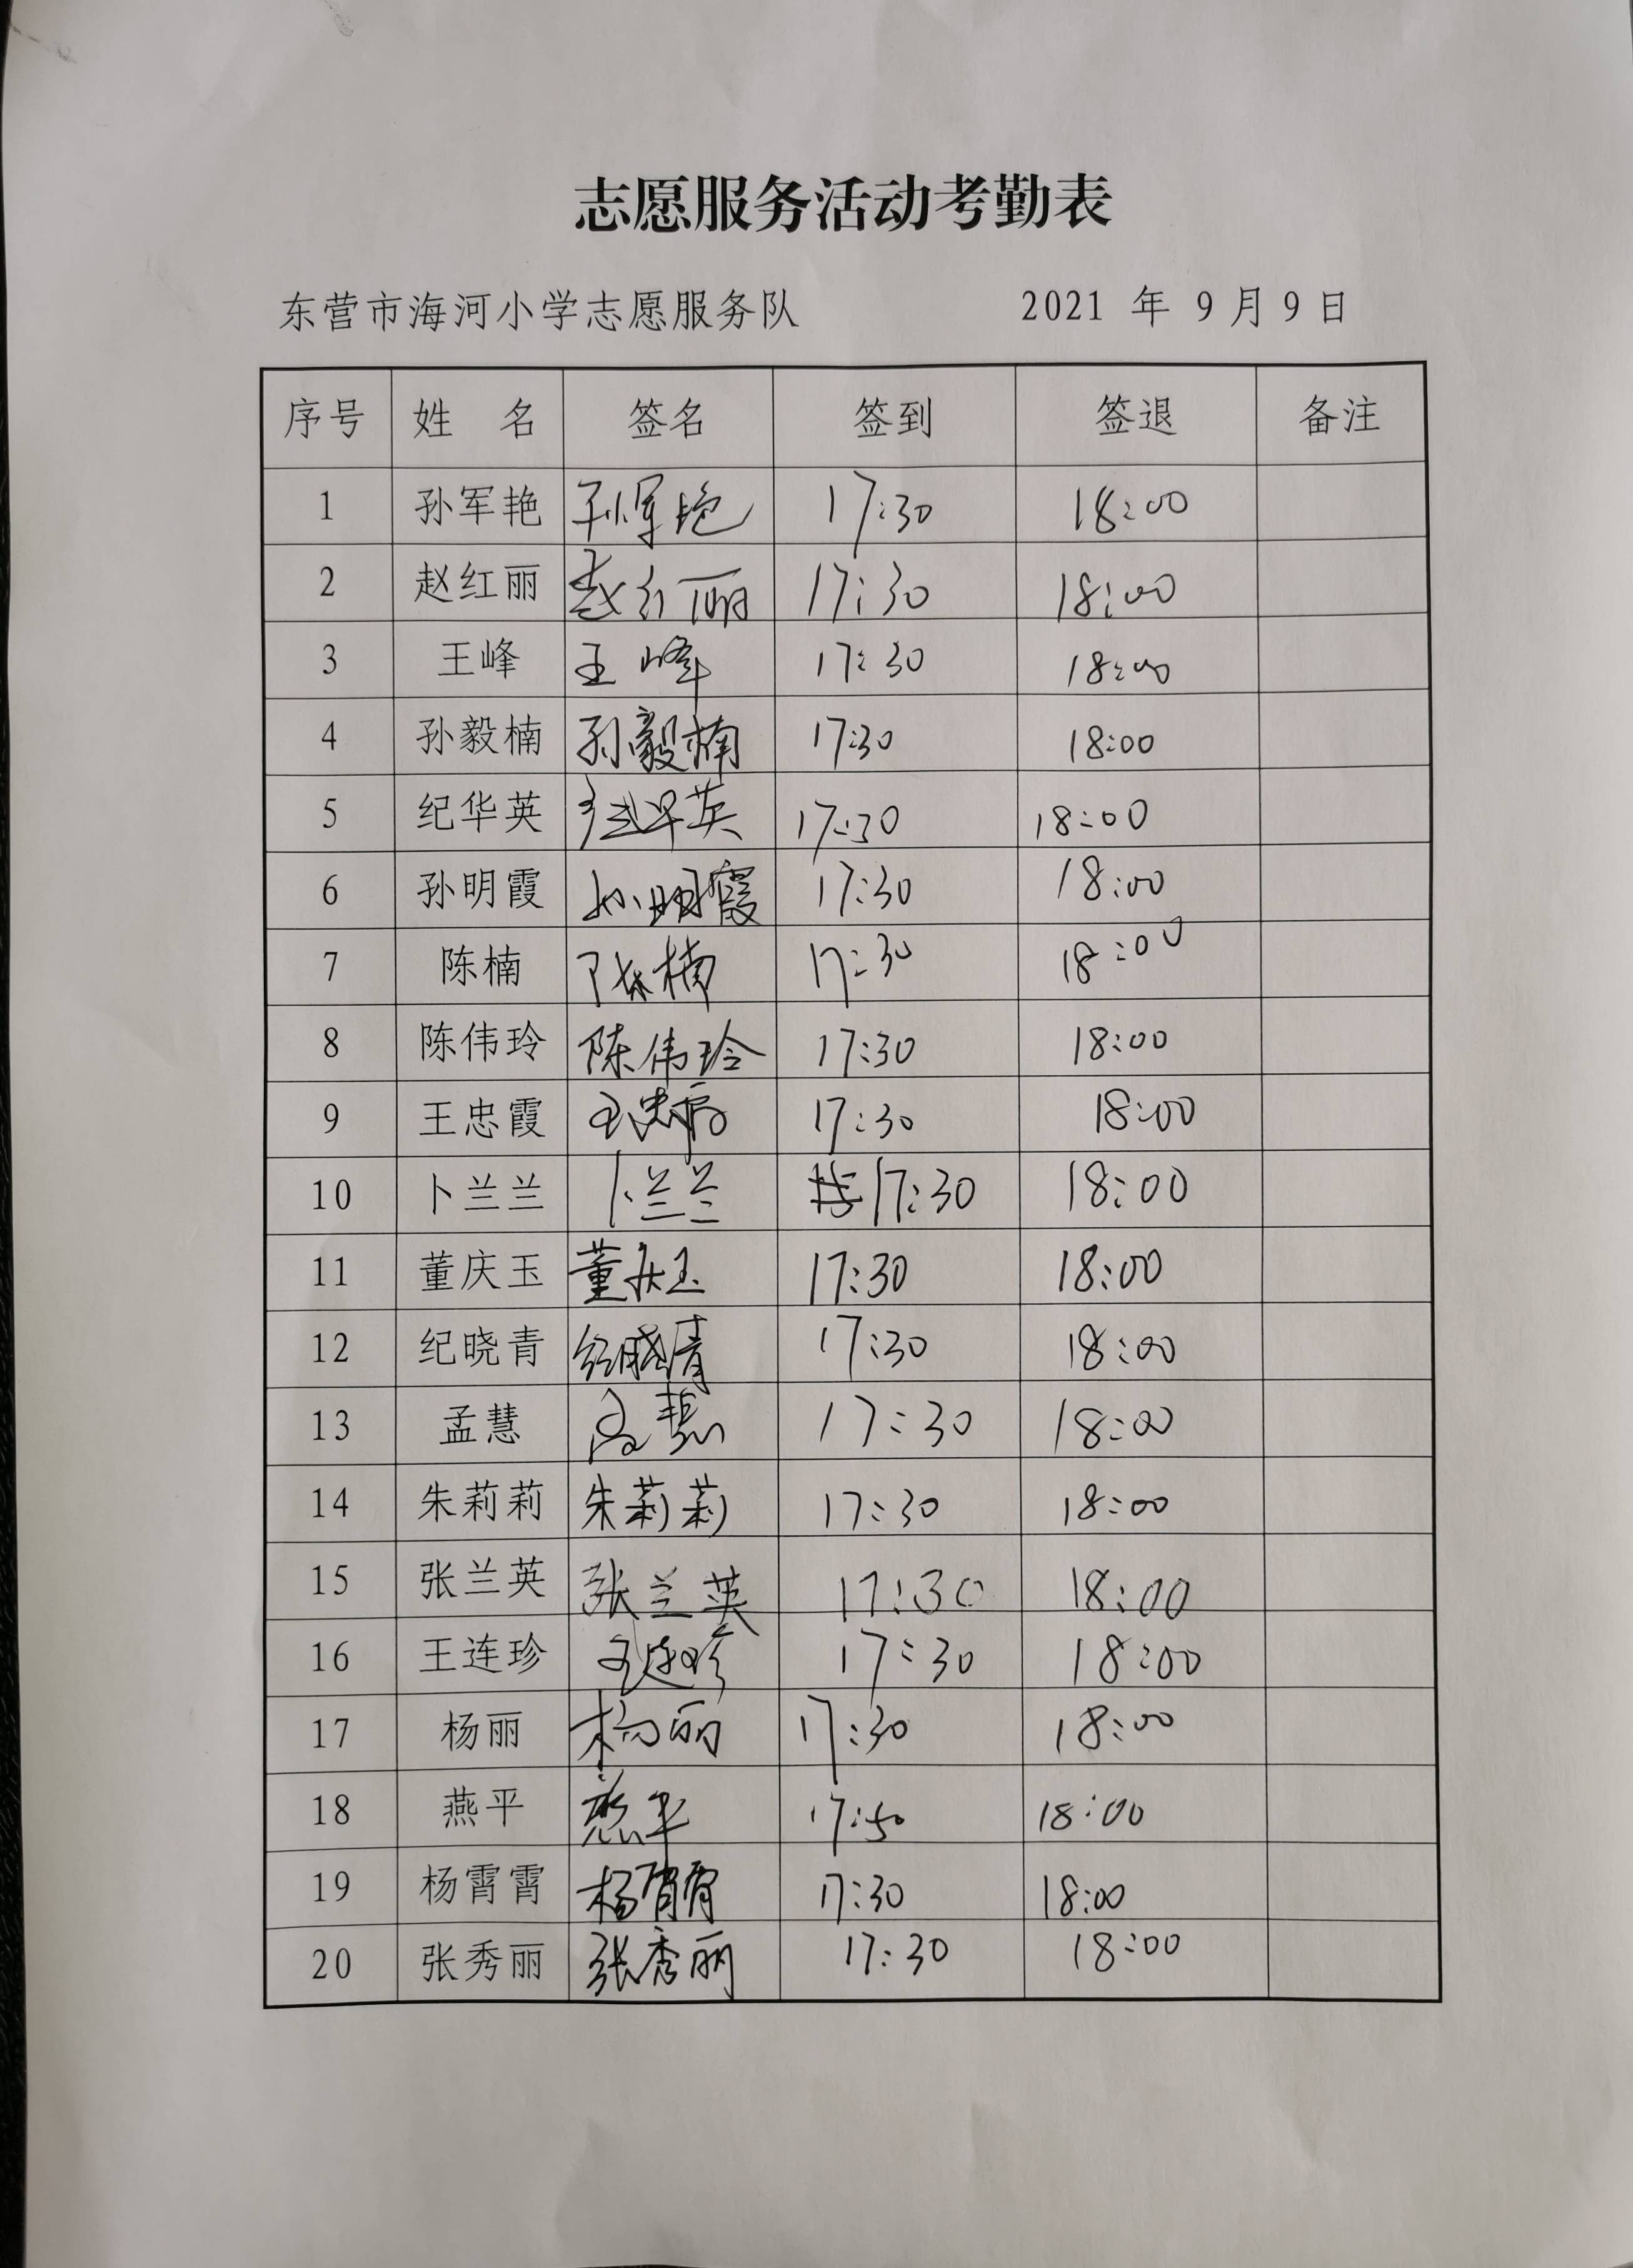 志愿服务活动考勤表
东营市海河小学志愿服务队 2021 年 9 月 9 日
序号 姓 名 签名 签到 签退 备注
1 孙军艳 孙军艳 17:30 18:00
2 赵红丽 赵红丽 17:30 18:00
3 王峰 王峰 17:30 18:00
4 孙毅楠 孙毅楠 17:30 18:00
5 纪华英 纪华英 17:30 18:00
6 孙明霞 孙明霞 17:30 18:00
7 陈楠 陈楠 17:30 18:00
8 陈伟玲 陈伟玲 17:30 18:00
9 王忠霞 王忠霞 17:30 18:00
10 卜兰兰 卜兰兰 17:30 18:00
11 董庆玉 董庆玉 17:30 18:00
12 纪晓青 纪晓青 17:30 18:00
13 孟慧 孟慧 17:30 18:00
14 朱莉莉 朱莉莉 17:30 18:00
15 张兰英 张兰英 17:30 18:00
16 王连珍 王连珍 17:30 18:00
17 杨丽 杨丽 17:30 18:00
18 燕平 燕平 17:50 18:00
19 杨霄霄 杨霄霄 17:30 18:00
20 张秀丽 张秀丽 17:30 18:00